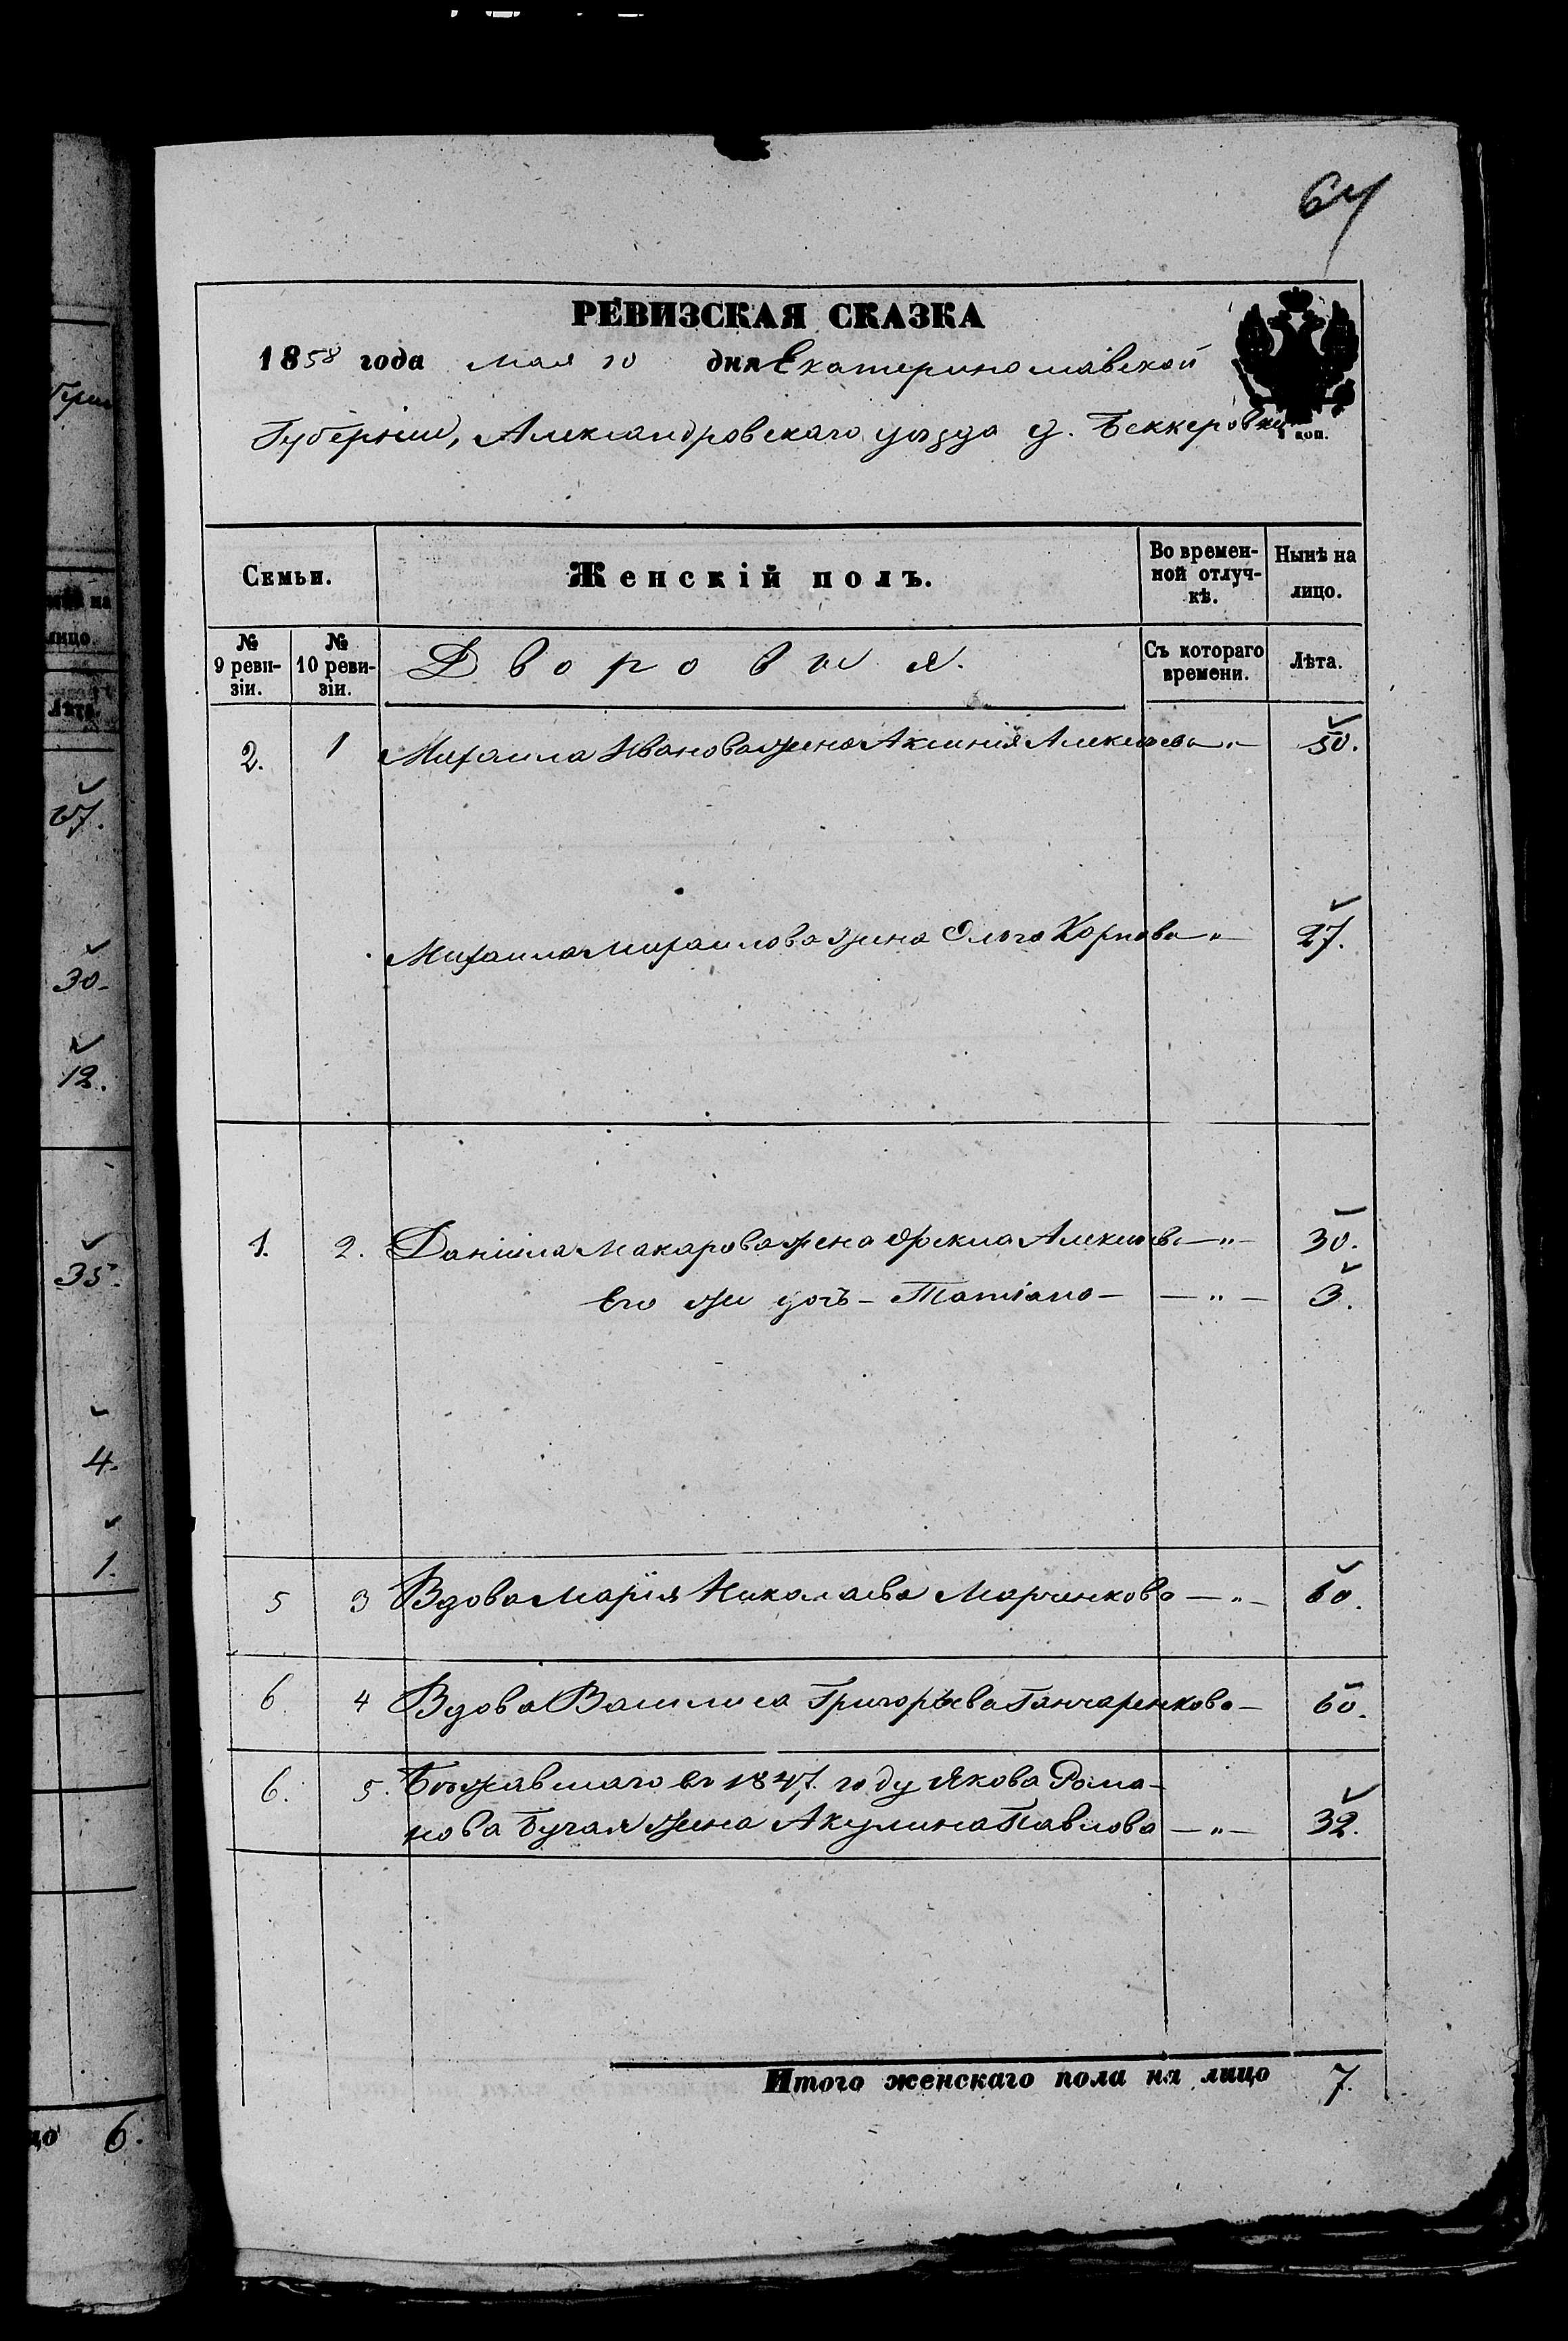 64
РЕВИЗСКАЯ СКАЗКА
1858 года мая 10 дня Екатеринославской
Губерніи, Александровскаго уѣзда д. Беккеровки
коп.
Семьи.
Женскій полъ.
Во времен-
ной отлуч-
кѣ.
Нынѣ на
лицо.
№
9 реви-
зіи.
№
10 реви-
зіи.
Дворовыя.
Съ котораго
времени.
Лѣта.
2. 1 Михаила Иванова жена Аксинія Алексѣева —„— 50.
Михаила Михаилова жена Ольга Карпова „— 27.
1. 2. Даніила Макарова жена Фекла Алексѣева —„— 30.
Его же дочь — Татіана — —„— 3.
5 3 Вдова Марія Николаева Марченкова —„— 60.
6 4 Вдова Василиса Григорьева Ганчаренкова — 60.
6. 5. Бѣжавшаго въ 1847. году Якова Рома-
нова Бугая жена Акулина Павлова —„— 32.
Итого женскаго пола на лицо 7.
лицо
Лѣта
27.
30.
12.
35.
4.
1.
цо 6.